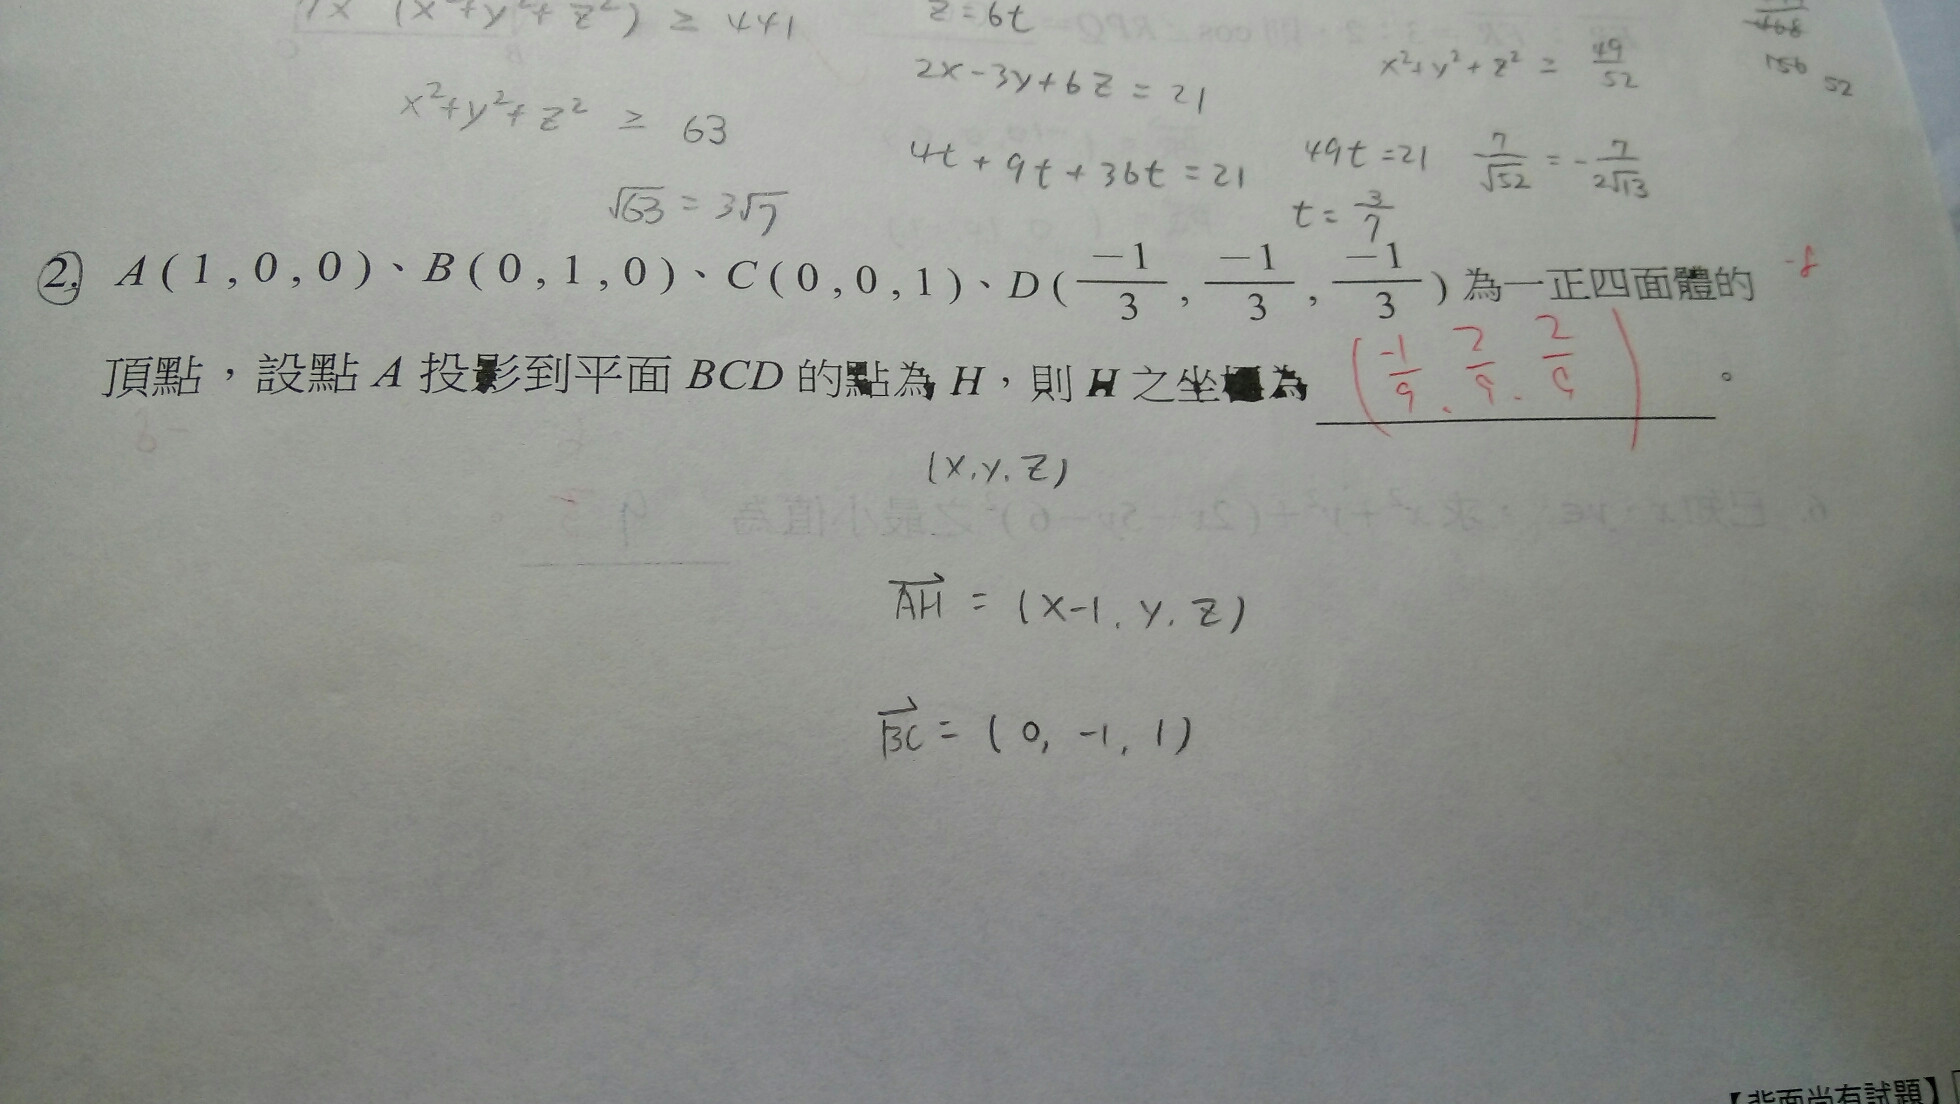 (x²+y²+z²) ≥ 441
z=6t
x²+y²+z² ≥ 63
2x-3y+6z=21
x²+y²+z² = 49/52
468
156
52
√63 = 3√7
4t+9t+36t=21
49t=21
7/√52 = -7/2√13
t=3/7
2. A(1,0,0)、B(0,1,0)、C(0,0,1)、D(-1/3,-1/3,-1/3)為一正四面體的
-8
頂點,設點 A 投影到平面 BCD 的點為 H,則 H 之坐標為 (-1/9, 2/9, 2/9)。
(x,y,z)
AH = (x-1, y, z)
BC = (0, -1, 1)
【背面尚有試題】